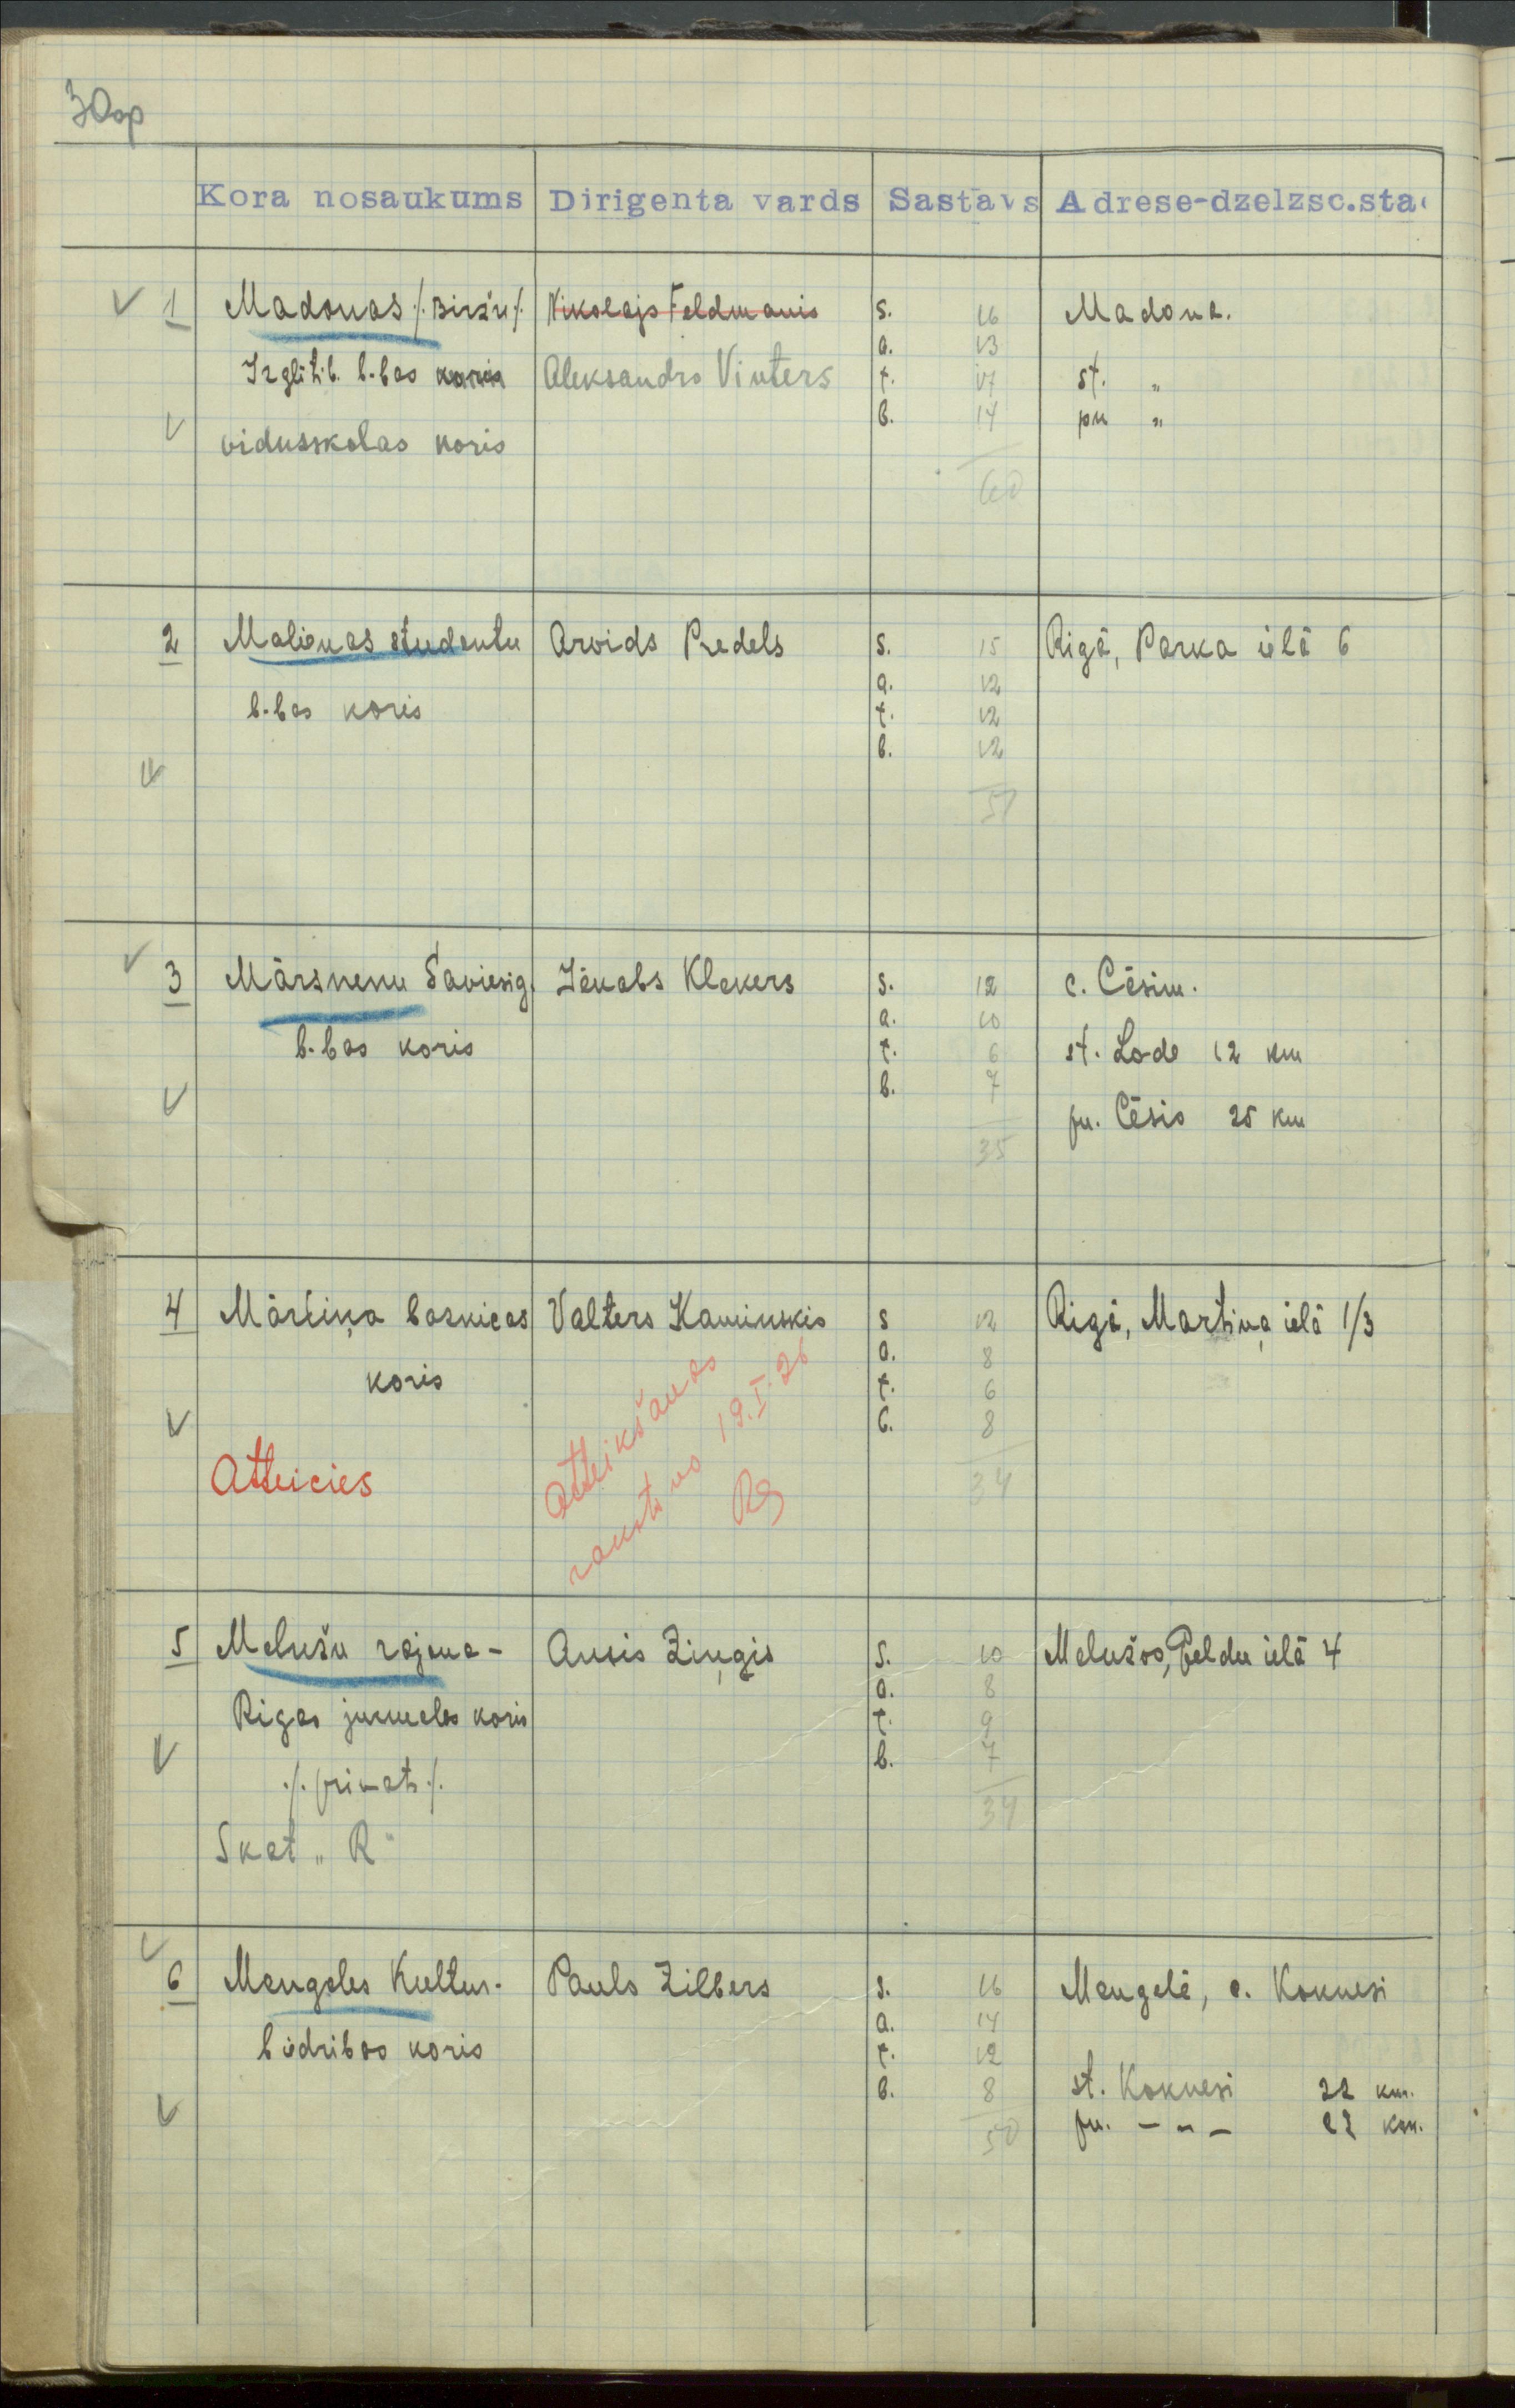 30op
Kora nosaukums Dirigenta vards Sastavs Adrese-dzelzsc.sta
1 Madonas ./. Biržu ./. Nikolajs Feldmanis s. 16 Madona.
a. 13
Izglitib. b-bas koris Aleksandrs Vinters t. 17 st. „
b. 14 pn „
vidusskolas koris
60
2 Malienas studentu Arvids Predels s. 15 Rigā, Parka ielā 6
a. 12
b-bas koris t. 12
b. 12
51
3 Mārsnenu Saviesig. Jēkabs Klekers s. 12 c. Cēsim.
a. 10
b-bas koris t. 6 st. Lode 12 km
b. 7
pn. Cēsis 25 km
35
4 Mārtiņa baznicas Valters Kaminskis s 12 Rigā, Martiņa ielā 1/3
a. 8
koris t. 6
b. 8
Atteicies
Atteikšanās
raksts no 19.I.26
34
5 Melušu rajona- Ansis Ziņģis s. 10 Melužos, Peldu ielā 4
a. 8
Rigas jurmalas koris t. 9
b. 7
./. privats ./.
34
Skat „R"
6 Mengeles Kultur- Pauls Zilbers s. 16 Mengelē, c. Koknesi
a. 14
biedribas koris t. 12
b. 8 st. Koknesi 22 km.
pn. - „ - 22 km.
50